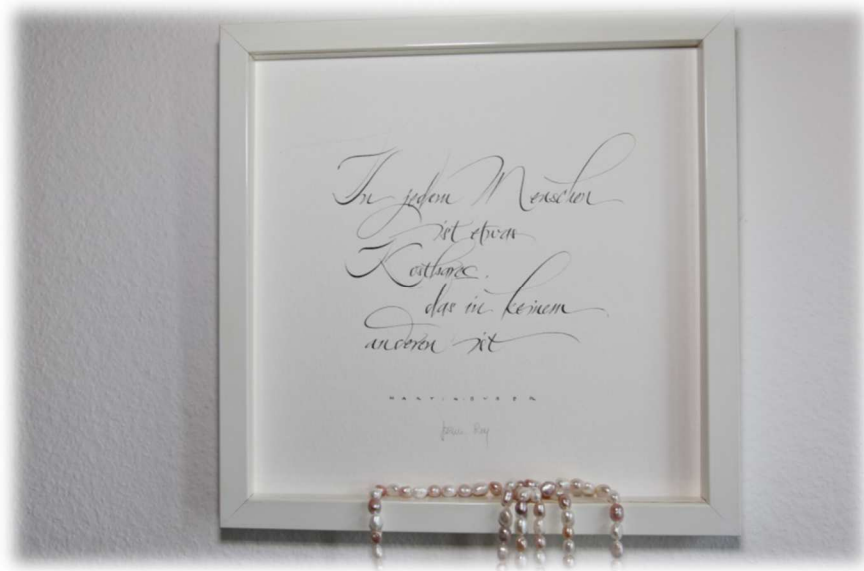 In jedem Menschen
ist etwas
Kostbares,
das in keinem
anderen ist
MARTIN BUBER